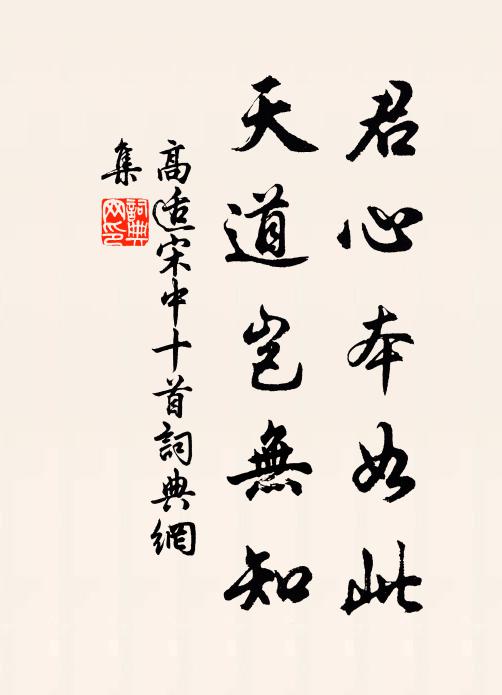 君心本如此
天道豈無知
高適宋中十首詞典網
集
詞典
网印